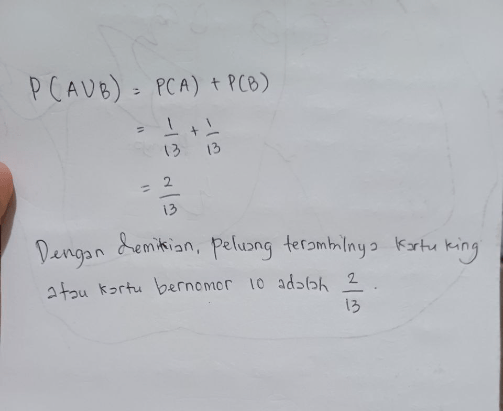 P(A∪B) = P(A) + P(B)
= 1/13 + 1/13
= 2/13
Dengan demikian, peluang terambilnya kartu king
atau kartu bernomor 10 adalah 2/13.